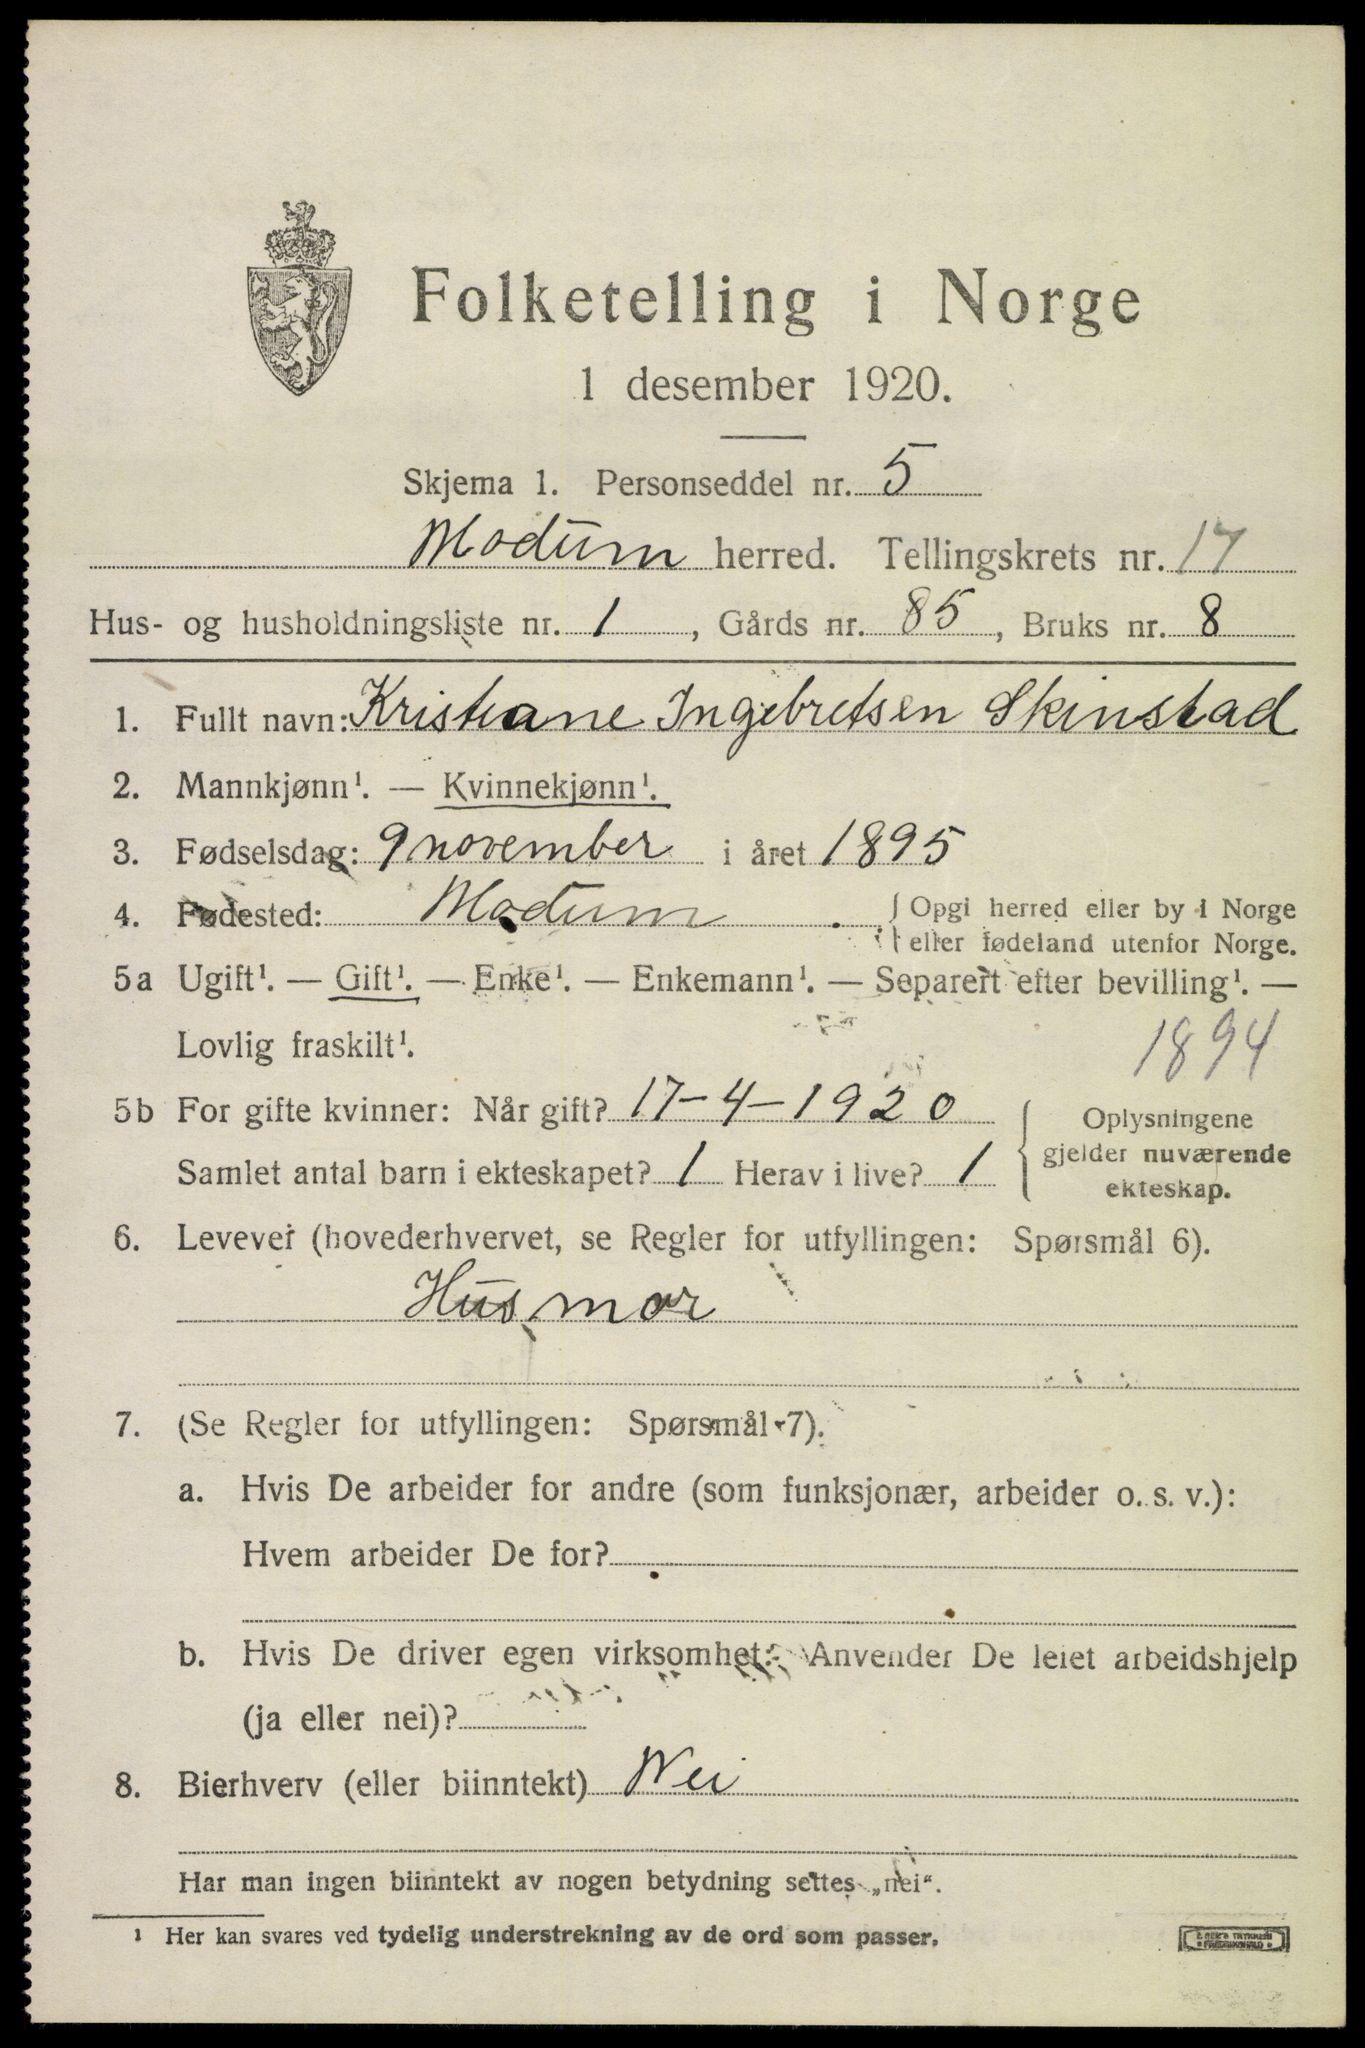 Folketelling i Norge
1 desember 1920.
Skjema 1. Personseddel nr. 5
Modum herred. Tellingskrets nr. 17
Hus- og husholdningsliste nr. 1, Gårds nr. 85, Bruks nr. 8
1. Fullt navn: Kristiane Ingebretsen Skinstad
2. Mannkjønn¹. — Kvinnekjønn¹.
3. Fødselsdag: 9 november i året 1895
4. Fødested: Modum { Opgi herred eller by i Norge
eller fødeland utenfor Norge.
5a Ugift¹. — Gift¹. — Enke¹. — Enkemann¹. — Separert efter bevilling¹. —
Lovlig fraskilt¹. 1894
5b For gifte kvinner: Når gift? 17-4-1920 { Oplysningene
gjelder nuværende
ekteskap.
Samlet antal barn i ekteskapet? 1 Herav i live? 1
6. Levevei (hovederhvervet, se Regler for utfyllingen: Spørsmål 6).
Husmor
7. (Se Regler for utfyllingen: Spørsmål 7).
a. Hvis De arbeider for andre (som funksjonær, arbeider o. s. v.):
Hvem arbeider De for?
b. Hvis De driver egen virksomhet: Anvender De leiet arbeidshjelp
(ja eller nei)?
8. Bierhverv (eller biinntekt) Nei
Har man ingen biinntekt av nogen betydning settes „nei“.
¹ Her kan svares ved tydelig understrekning av de ord som passer.